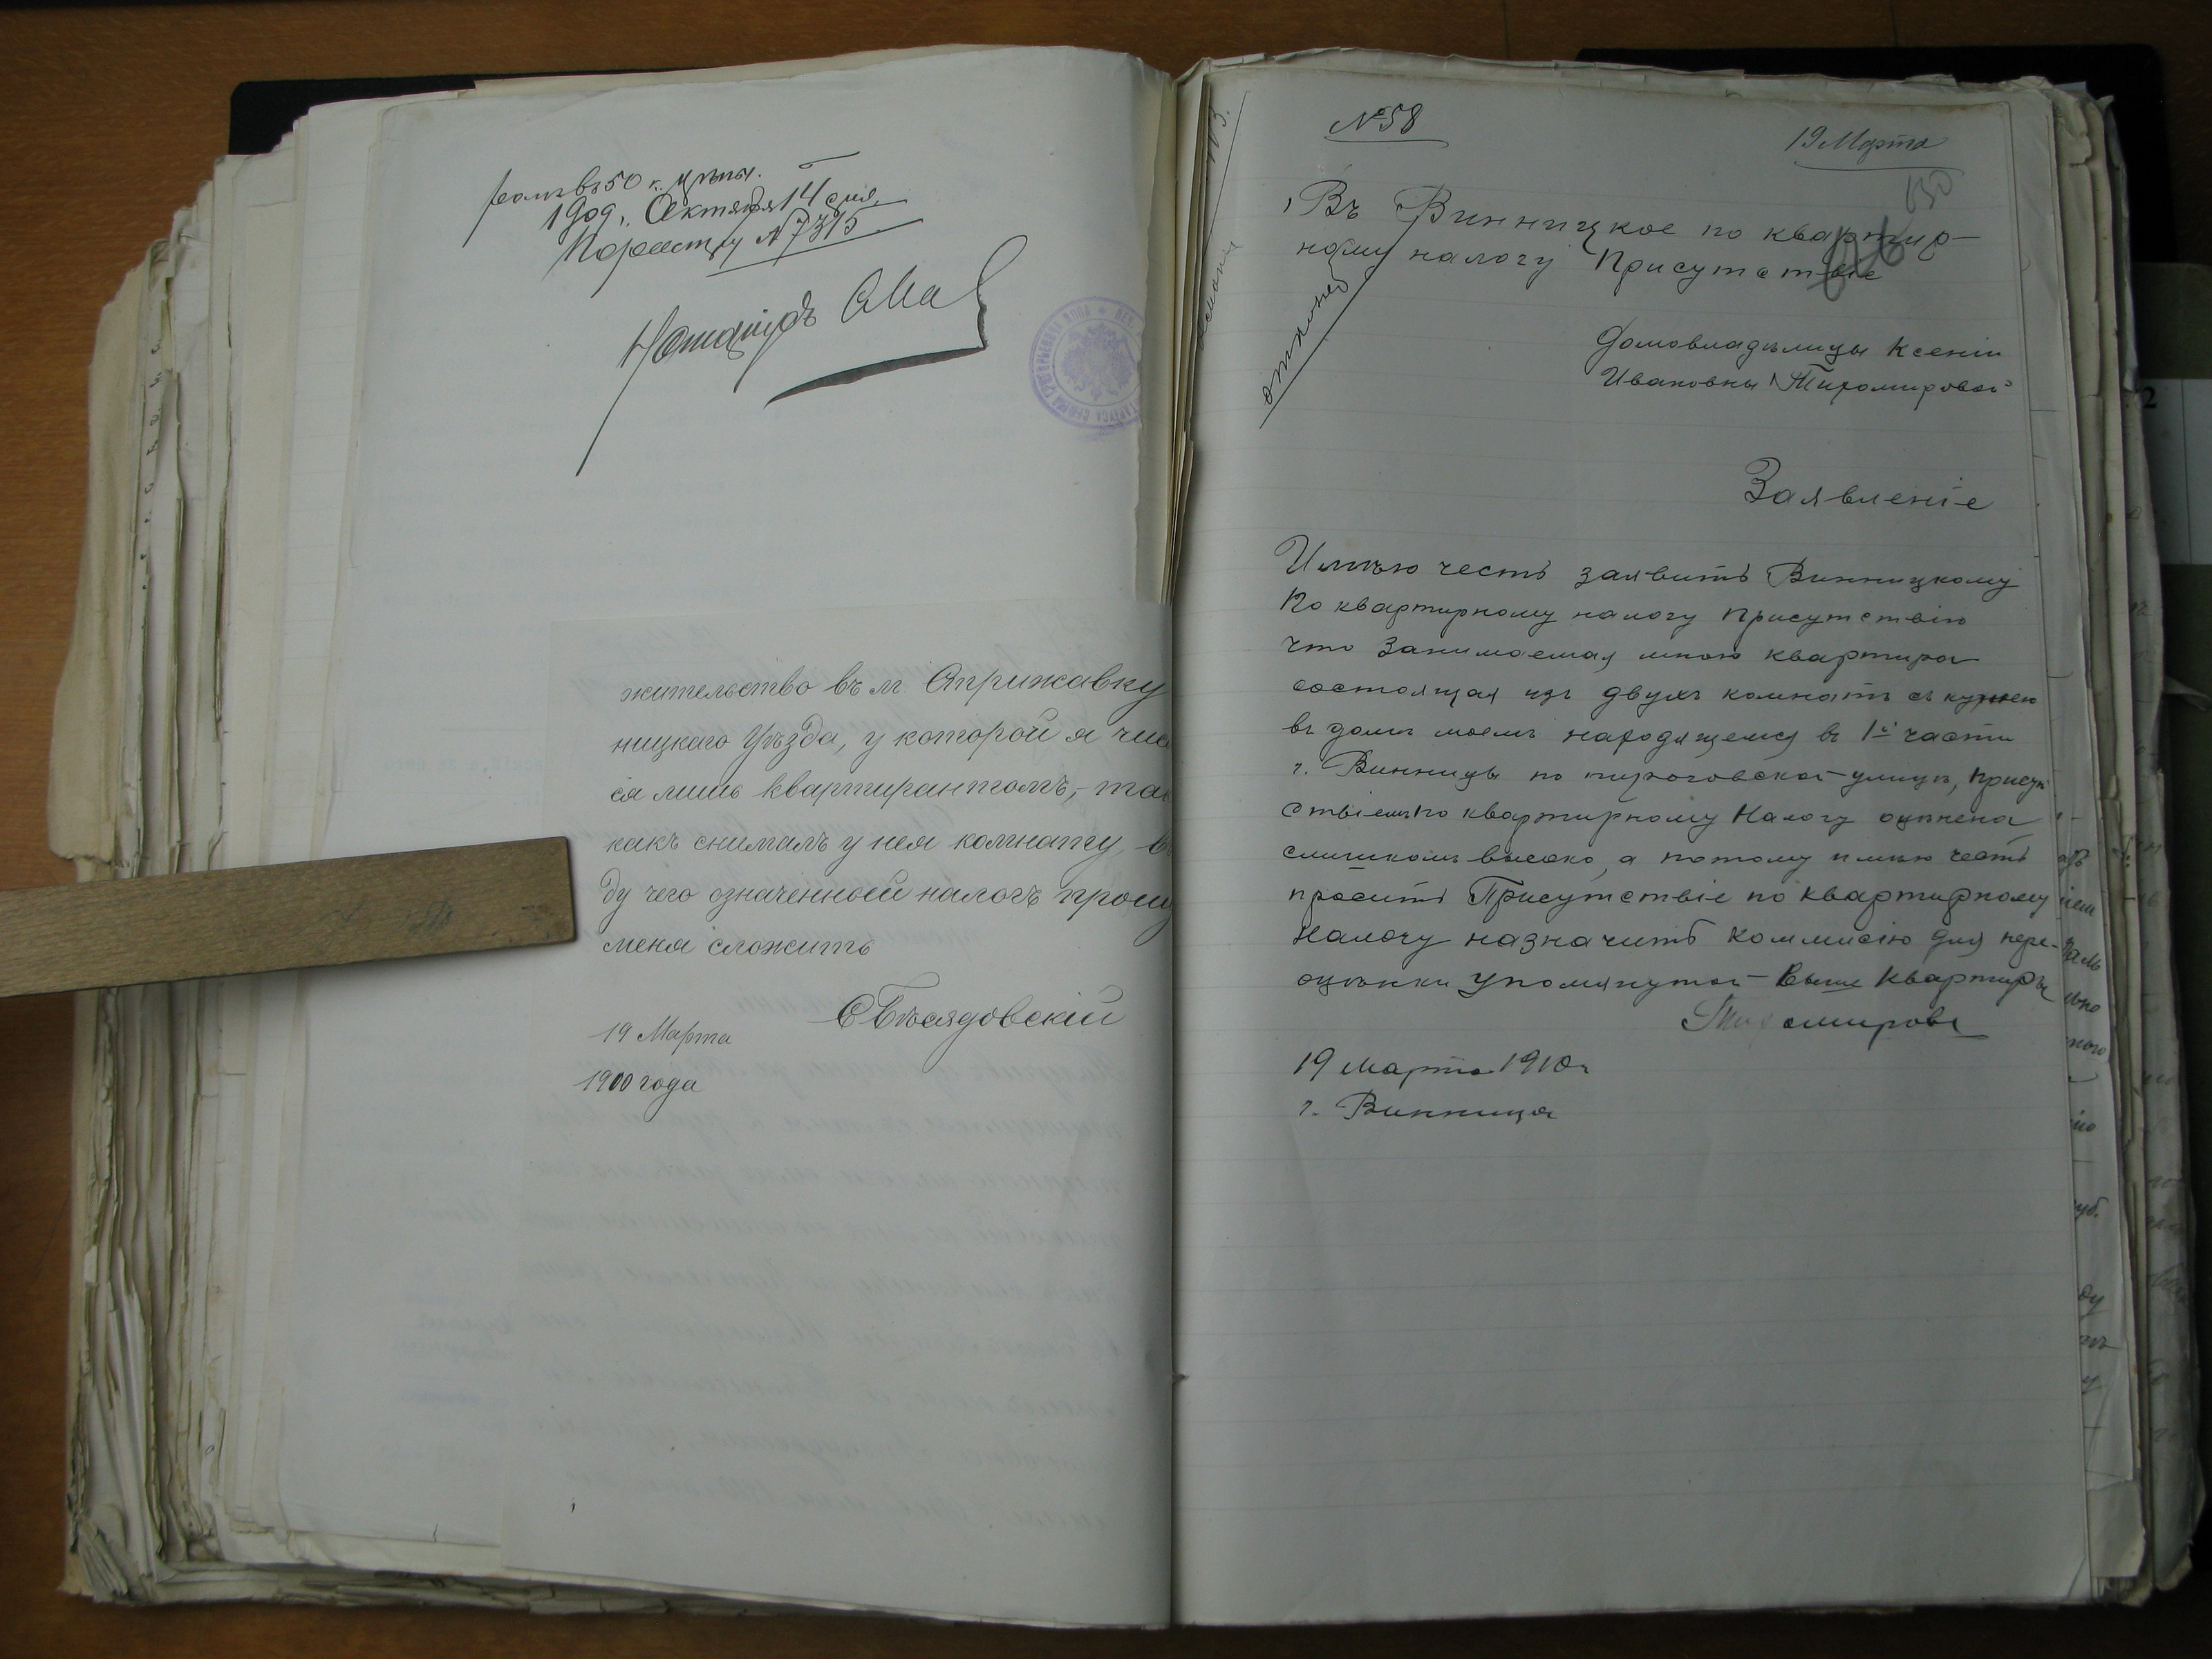 50 к.
190 9. Октября 14 дня.
По реестру № 7315
Нотаріусъ
жительство въ м. Стрижавку
ницкаго Уѣзда, у которой я чис
ся лишь квартирантомъ, - так
какъ снималъ у нея комнату, в
ду чего означенный налогъ прошу
меня сложить
СБѣсядовскій
19 Марта
1910 года
№ 58
19 Марта
630
Въ Винницкое по квартир-
ному налогу Присутствіе
Домовладѣлицы Ксеніи
Ивановны Тихомировой
Заявленіе
Имѣю честь заявить Винницкому
по квартирному налогу Присутствію
что занимаемая мною квартира
состоящая изъ двухъ комнатъ съ кухнею
въ домѣ моемъ находящемся въ 1й части
г. Винницы по пироговской улицѣ, Присут
ствіемъ по квартирному Налогу оцѣнена
слишкомъ высоко, а потому имѣю честь
просить Присутствіе по квартирному
Налогу назначить коммисію для пере-
оцѣнки упомянутой выше квартиры
Тихомирова
19 марта 1910 г
г. Винница